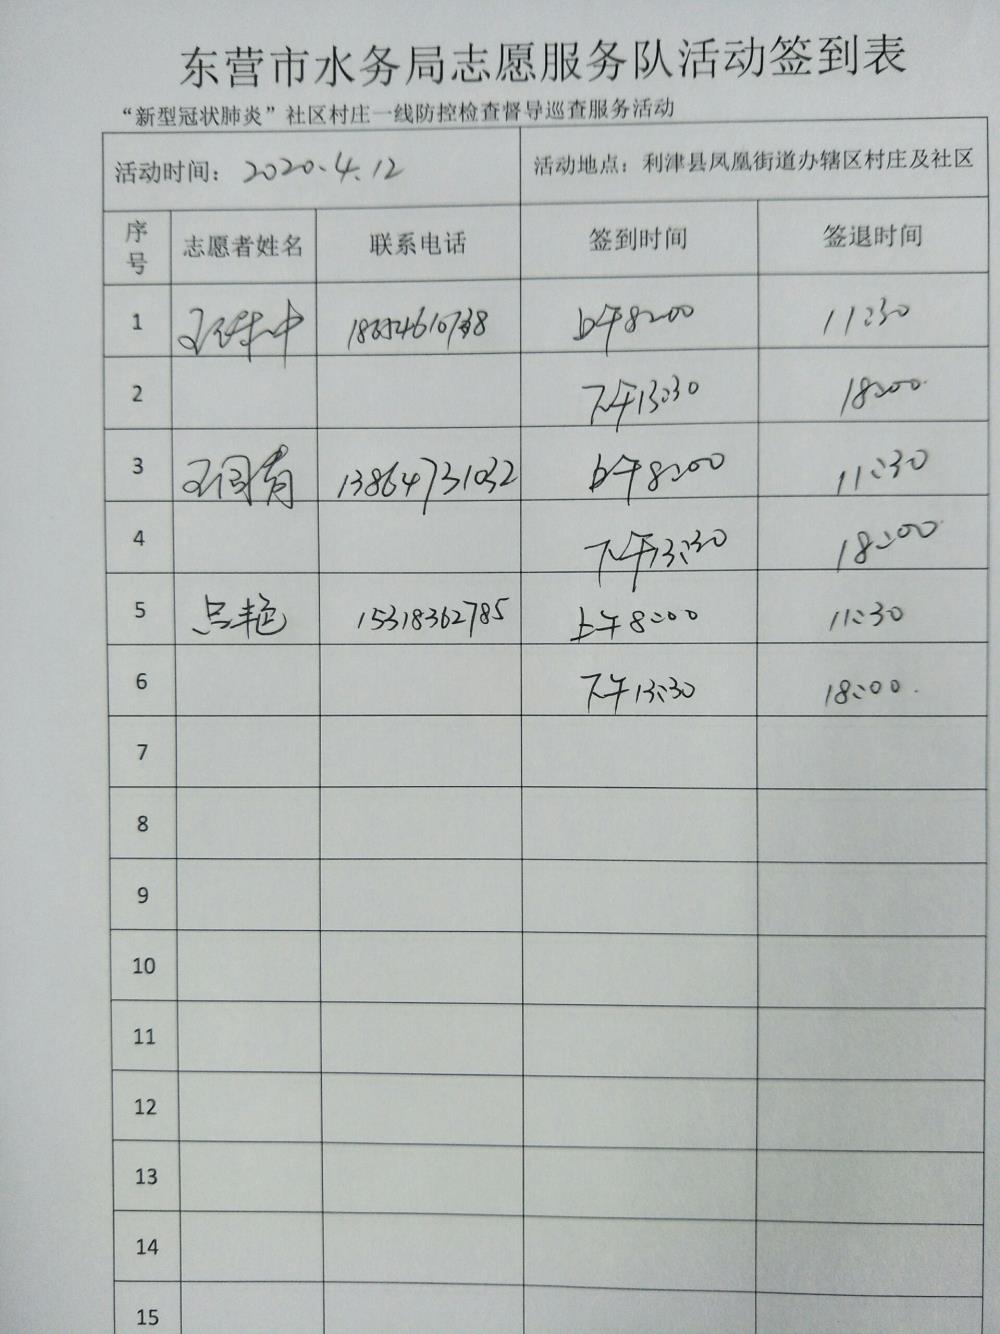 东营市水务局志愿服务队活动签到表
“新型冠状肺炎”社区村庄一线防控检查督导巡查服务活动
活动时间：2020.4.12 活动地点：利津县凤凰街道办辖区村庄及社区
序号 志愿者姓名 联系电话 签到时间 签退时间
1 上午8:00 11:30
2 下午13:30 18:00
3 13864731032 上午8:00 11:30
4 下午13:30 18:00
5 吕艳 15318362785 上午8:00 11:30
6 下午13:30 18:00.
7
8
9
10
11
12
13
14
15